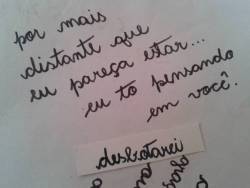 por mais
distante que
eu pareça estar...
eu to pensando
em você.
desbotarei